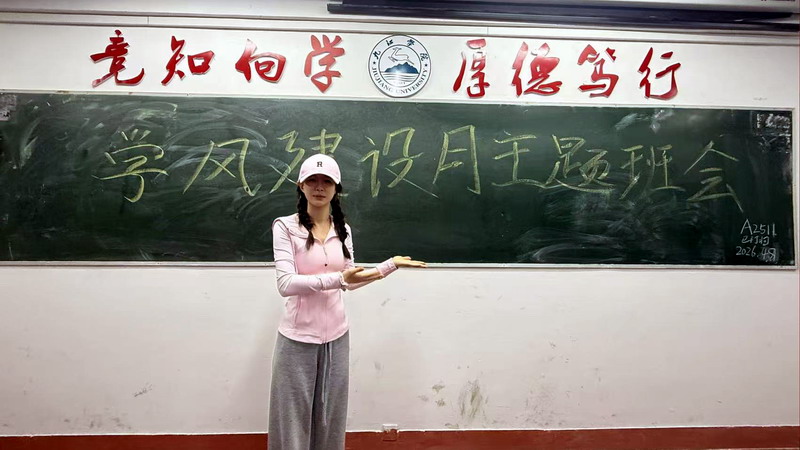 竟知向学
九江学院
JIUJIANG UNIVERSITY
厚德笃行
学风建设月主题班会
R
A2511